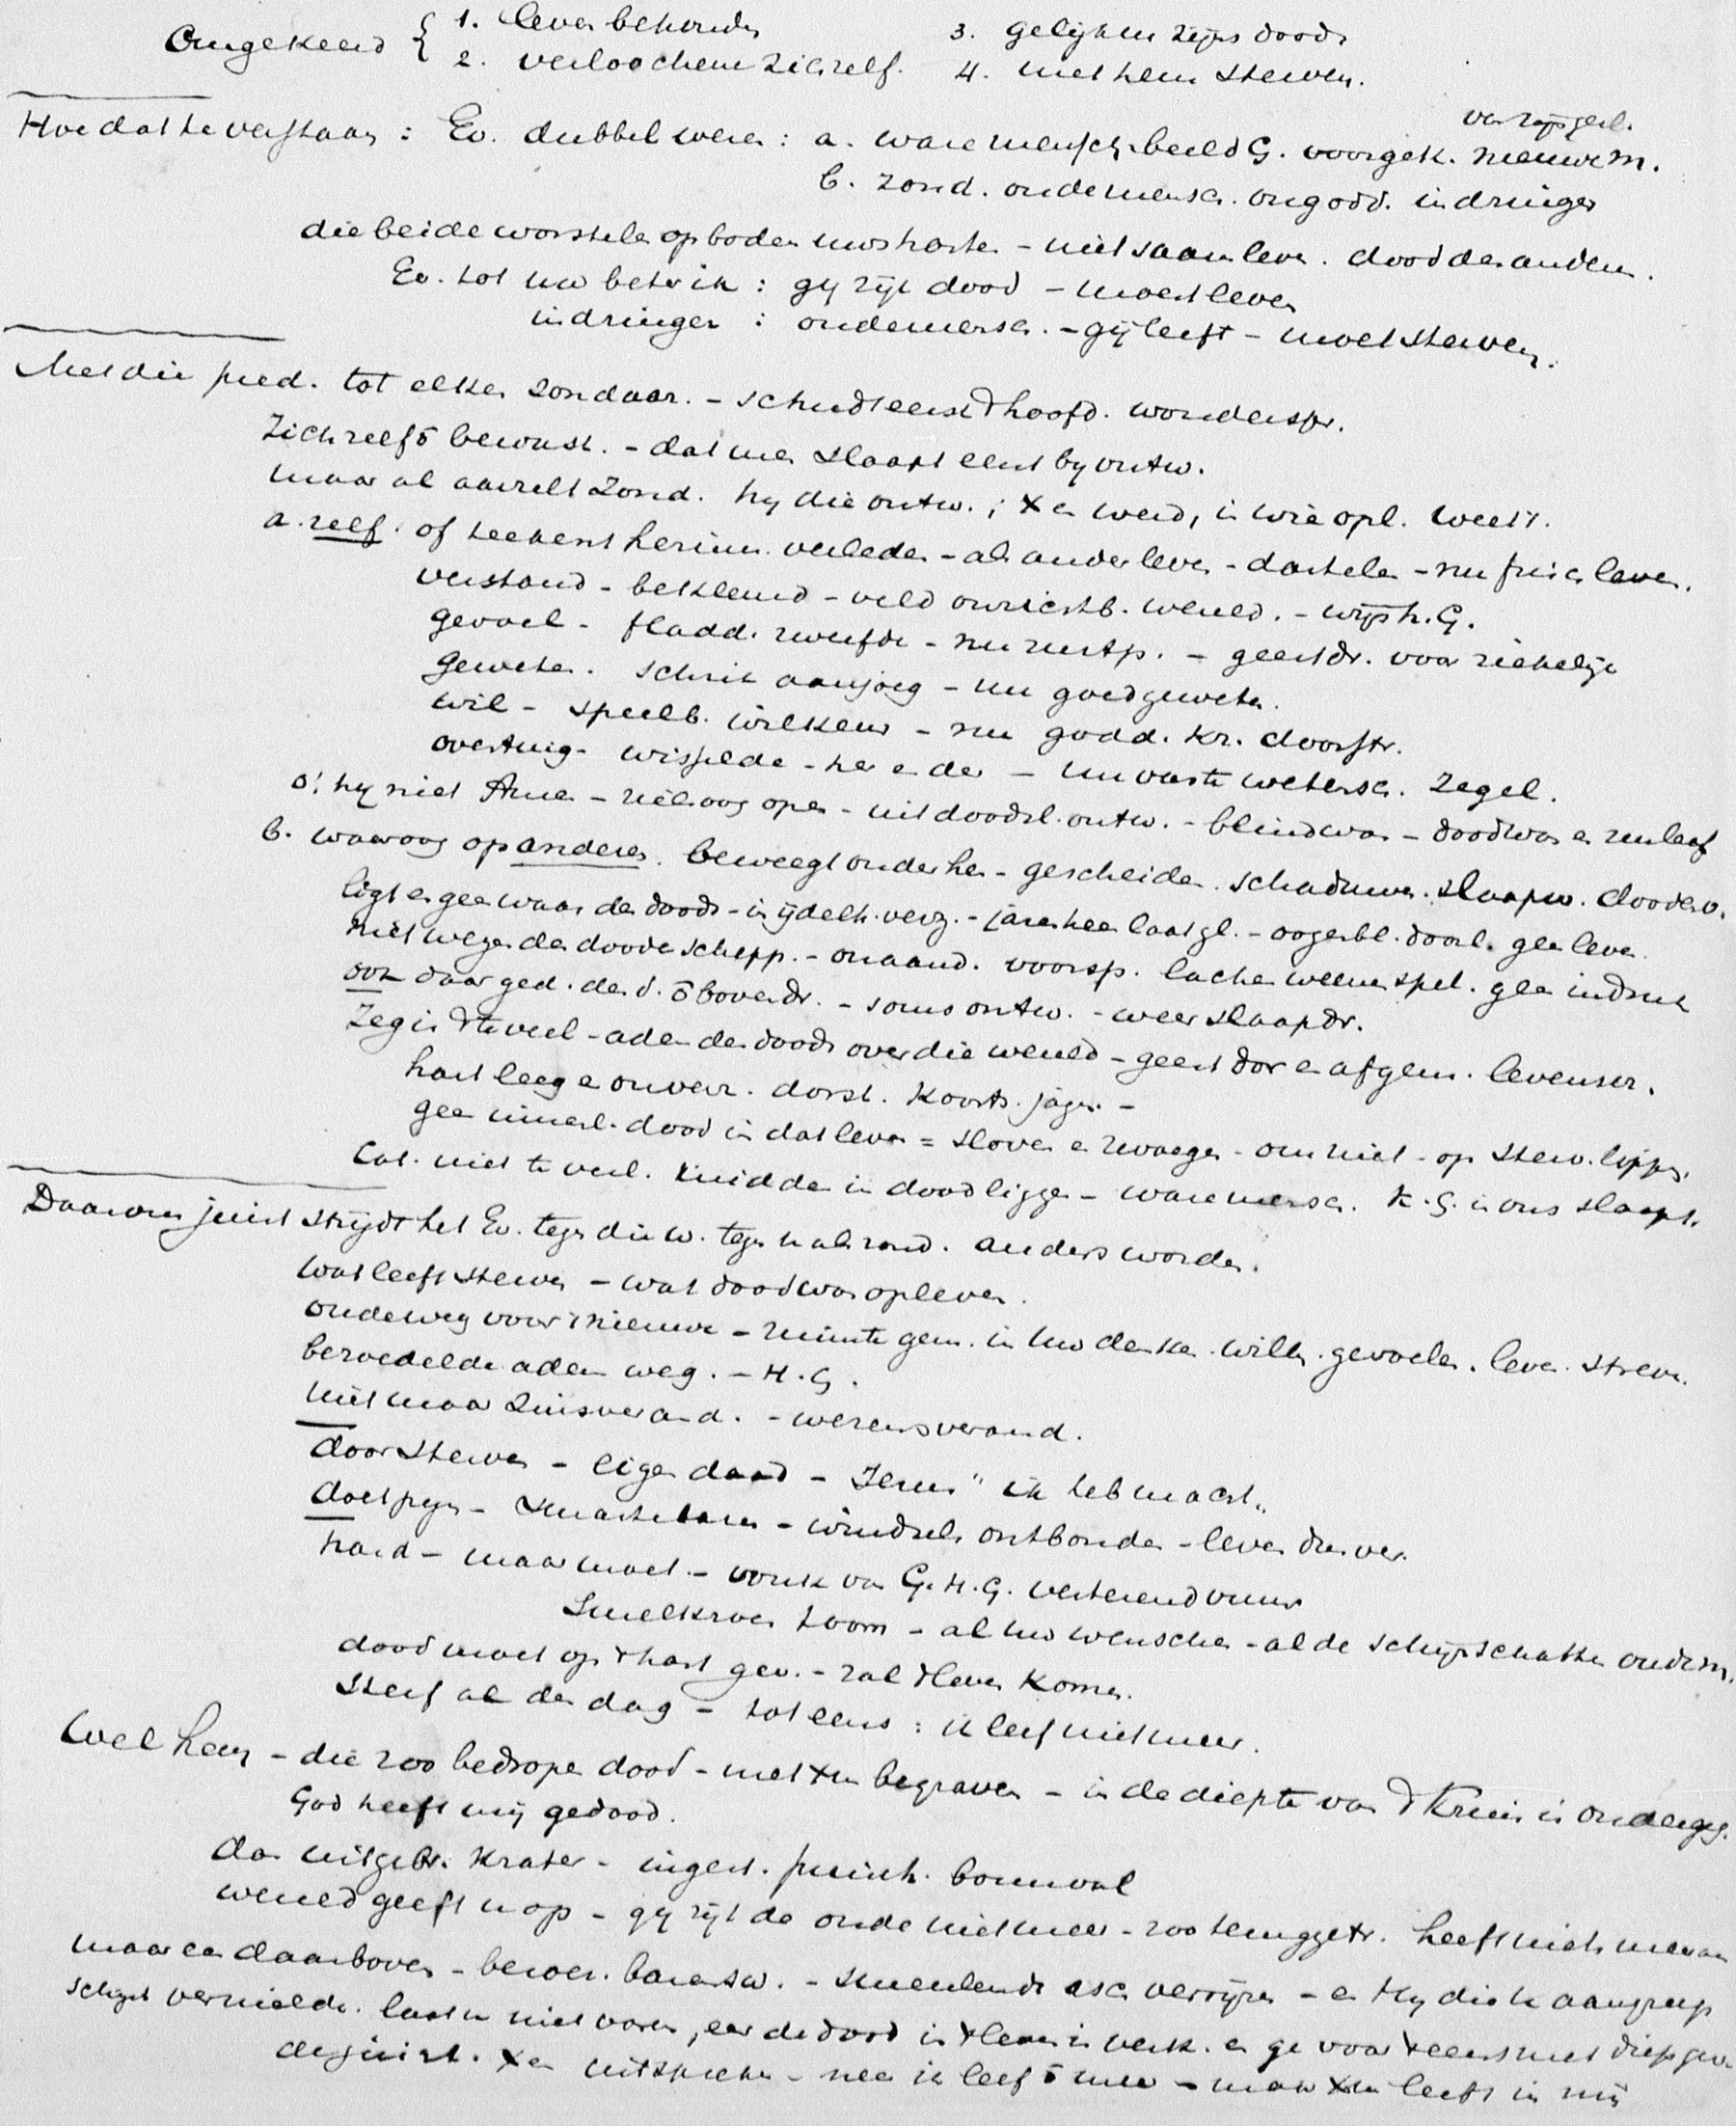 Omgekeerd { 1. leven behouden 3. gelijk in zijns doods
2. verloochene zichzelf. 4. met hem sterven.
van zijn gesl.
Hoe dat te verstaan : Ev. dubbel wezen : a. ware mensch beeld G. voorgek. nieuwe m.
b. zond. oude mensch. ongodd. indringer
die beide worstelen op bodem uws harten - niet saam leven. dood des anderen.
Ev. tot uw betere ik : gij zijt dood - moet leven
indringer : oude mensch. - gij leeft - moet sterven.
Met die pred. tot elken zondaar. - schudt eerst 't hoofd. wonderspr.
Zichzelf ō bewust. - dat men slaapt eerst bij ontw.
maar al aarzelt zond. hij die ontw. ; X en werd, in wie opl. weet 't.
a. zelf. of teekent herinn. verleden - als ander leven - dartelen - nu frisch leven.
verstand - beklemd - veld onzichtb. wereld. - wijsh. G.
gevoel - fladd. zweefde - nu rustp. - geestdr. voor ziekelijk
geweten. schrik aanjoeg - nu goed geweten.
wil - speelb. willekeur - nu godd. kr. doorstr.
overtuig. wisselde - her en der - nu vaste wetensch. zegel.
o! hij niet Amen - ziels oog open - uit doodsl. ontw. - blind was - dood was en nu leef
b. waar oog op anderen. beweegt onder hen - gescheiden. schaduwen. slaapw. dooden.
ligt er geen waas des doods - in ijdelh. verz. - jaren heen laat gl. - oogenbl. doorl. geen leven
niet wegen der doode schepp. - onaand. voorsp. lachen weenen spel. geen indruk
ook daar ged. des d. ō bovendr. - soms ontw. - weer slaapdr.
Zeg is 't te veel - adem des doods over die wereld - geest dor en afgem. levenser.
hart leeg en onver. dorst. koorts. jagen. -
geen innerl. dood in dat leven = sloven en zwoegen - om niet - op sterv. lippen.
Cat. niet te veel. midden in dood liggen - ware mensch. k. G. in ons slaapt.
Daarom juist strijdt het Ev. tegen die w. tegen u als zond. anders worden.
wat leeft sterven - wat dood was opleven.
oude weg voor 't nieuwe - ruimte gem. in uw denken. willen. gevoelen. leven. streven.
bezoedelde adem weg. - H. G.
niet maar zinsverand. - wezensverand.
door sterven - eigen daad - Jezus " ik heb macht "
doet pijn - smarte baren - windsels ontbonden - leven
hard - maar moet. - vonk van G. H. G. verterend vuur
Smeltkroes toorn - al uw wenschen - al de schijnschatten oude m.
dood moet op 't hart gev. - zal 't leven komen.
Sterf al den dag - tot eens : ik leef niet meer.
Wel hem - die zoo bedropen dood - met Xen begraven - in de diepte van 't kruis is ondergeg.
God heeft mij gedood.
dan uitgebr. krater - ingest. puinh. bouwval
wereld geeft u op - gij zijt de oude niet meer - zoo teruggetr. heeft niets meer aan
maar een daarboven - - smeulende asch verrijzen - en Hij die u aangreep
schijnt vernielde. laat u niet varen, eer de dood in 't leven is verk. en ge voor 't eerst met diep gev.
de juist. X en uitspreken - neen ik leef ō meer - maar Xen leeft in mij